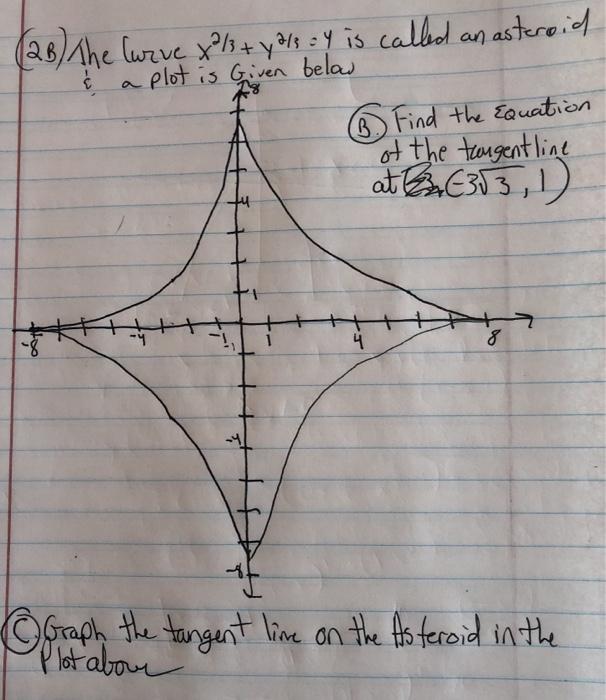 (2B) The Curve x^2/3 + y^2/3 = 4 is called an asteroid
& a plot is Given below
8
(B.) Find the Equation
of the tangent line
at (-3√3, 1)
4
1
-8 -4 -1 1 4 8
-1
-4
-8
(C.) Graph the tangent line on the Asteroid in the
Plot above